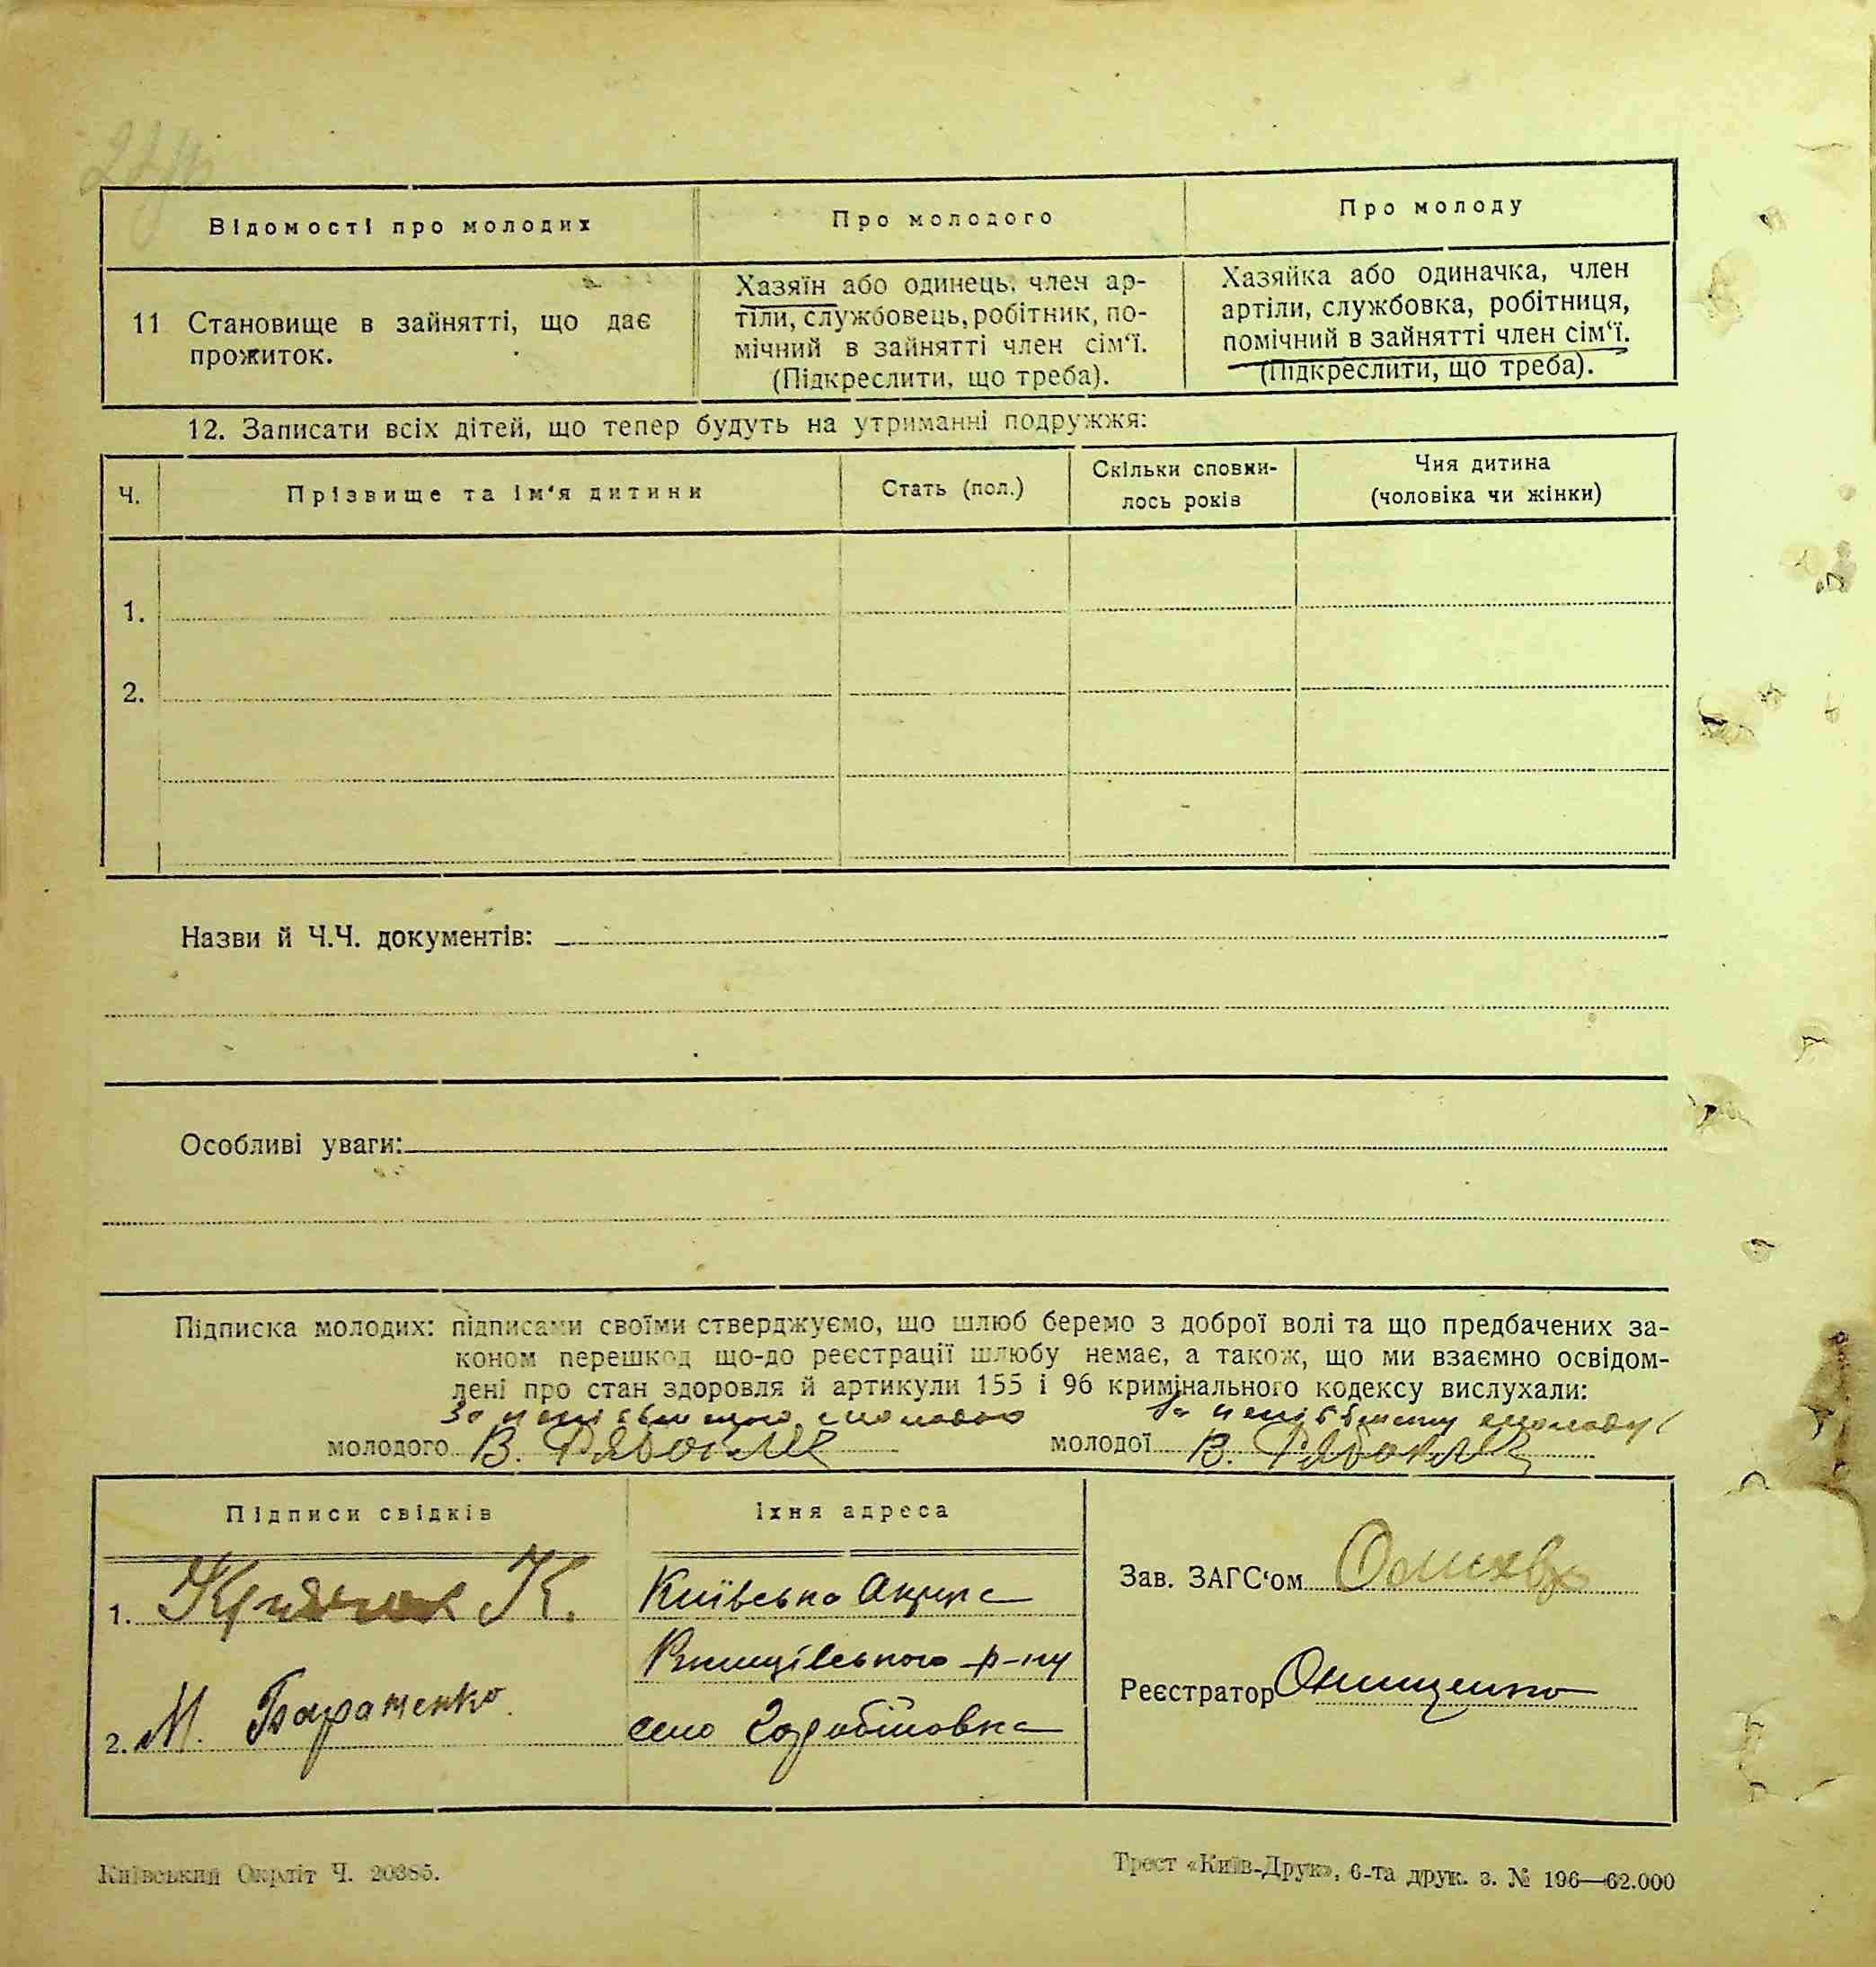 Відомості про молодих
Про молодого
Про молоду
11 Становище в зайнятті, що дає
прожиток.
Хазяїн або одинець, член ар-
тіли, службовець, робітник, по-
мічний в зайнятті член сім‘ї.
(Підкреслити, що треба).
Хазяйка або одиначка, член
артіли, службовка, робітниця,
помічний в зайнятті член сім‘ї.
(Підкреслити, що треба).
12. Записати всіх дітей, що тепер будуть на утриманні подружжя:
Ч.
Прізвище та ім‘я дитини
Стать (пол.)
Скільки сповни-
лось років
Чия дитина
(чоловіка чи жінки)
1.
2.
Назви й Ч.Ч. документів:
Особливі уваги:
Підписка молодих: підписами своїми стверджуємо, що шлюб беремо з доброї волі та що предбачених за-
коном перешкод що-до реєстрації шлюбу немає, а також, що ми взаємно освідом-
лені про стан здоровля й артикули 155 і 96 кримінального кодексу вислухали:
молодого В.
молодої В.
Підписи свідків
Їхня адреса
1. К.
Київська Округа
р-ну
2. М. Бараненко
село
Зав. ЗАГС‘ом
Реєстратор Онищенко
Київський Окрліт Ч. 20385.
Трест «Київ-Друк», 6-та друк. з. № 196—62.000